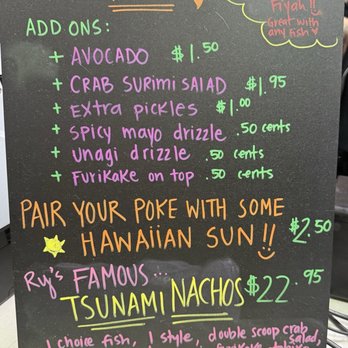 Fiyah!!
Great with
any fish
ADD ONS:
+ AVOCADO $1.50
+ CRAB SURIMI SALAD $1.95
+ EXTRA PICKLES $1.00
+ Spicy mayo drizzle .50 cents
+ unagi drizzle .50 cents
+ Furikake on top .50 cents
PAIR YOUR POKE WITH SOME
HAWAIIAN SUN!! $2.50
Ruj's FAMOUS...
TSUNAMI NACHOS $22.95
1 choice fish, 1 style, double scoop crab
salad,